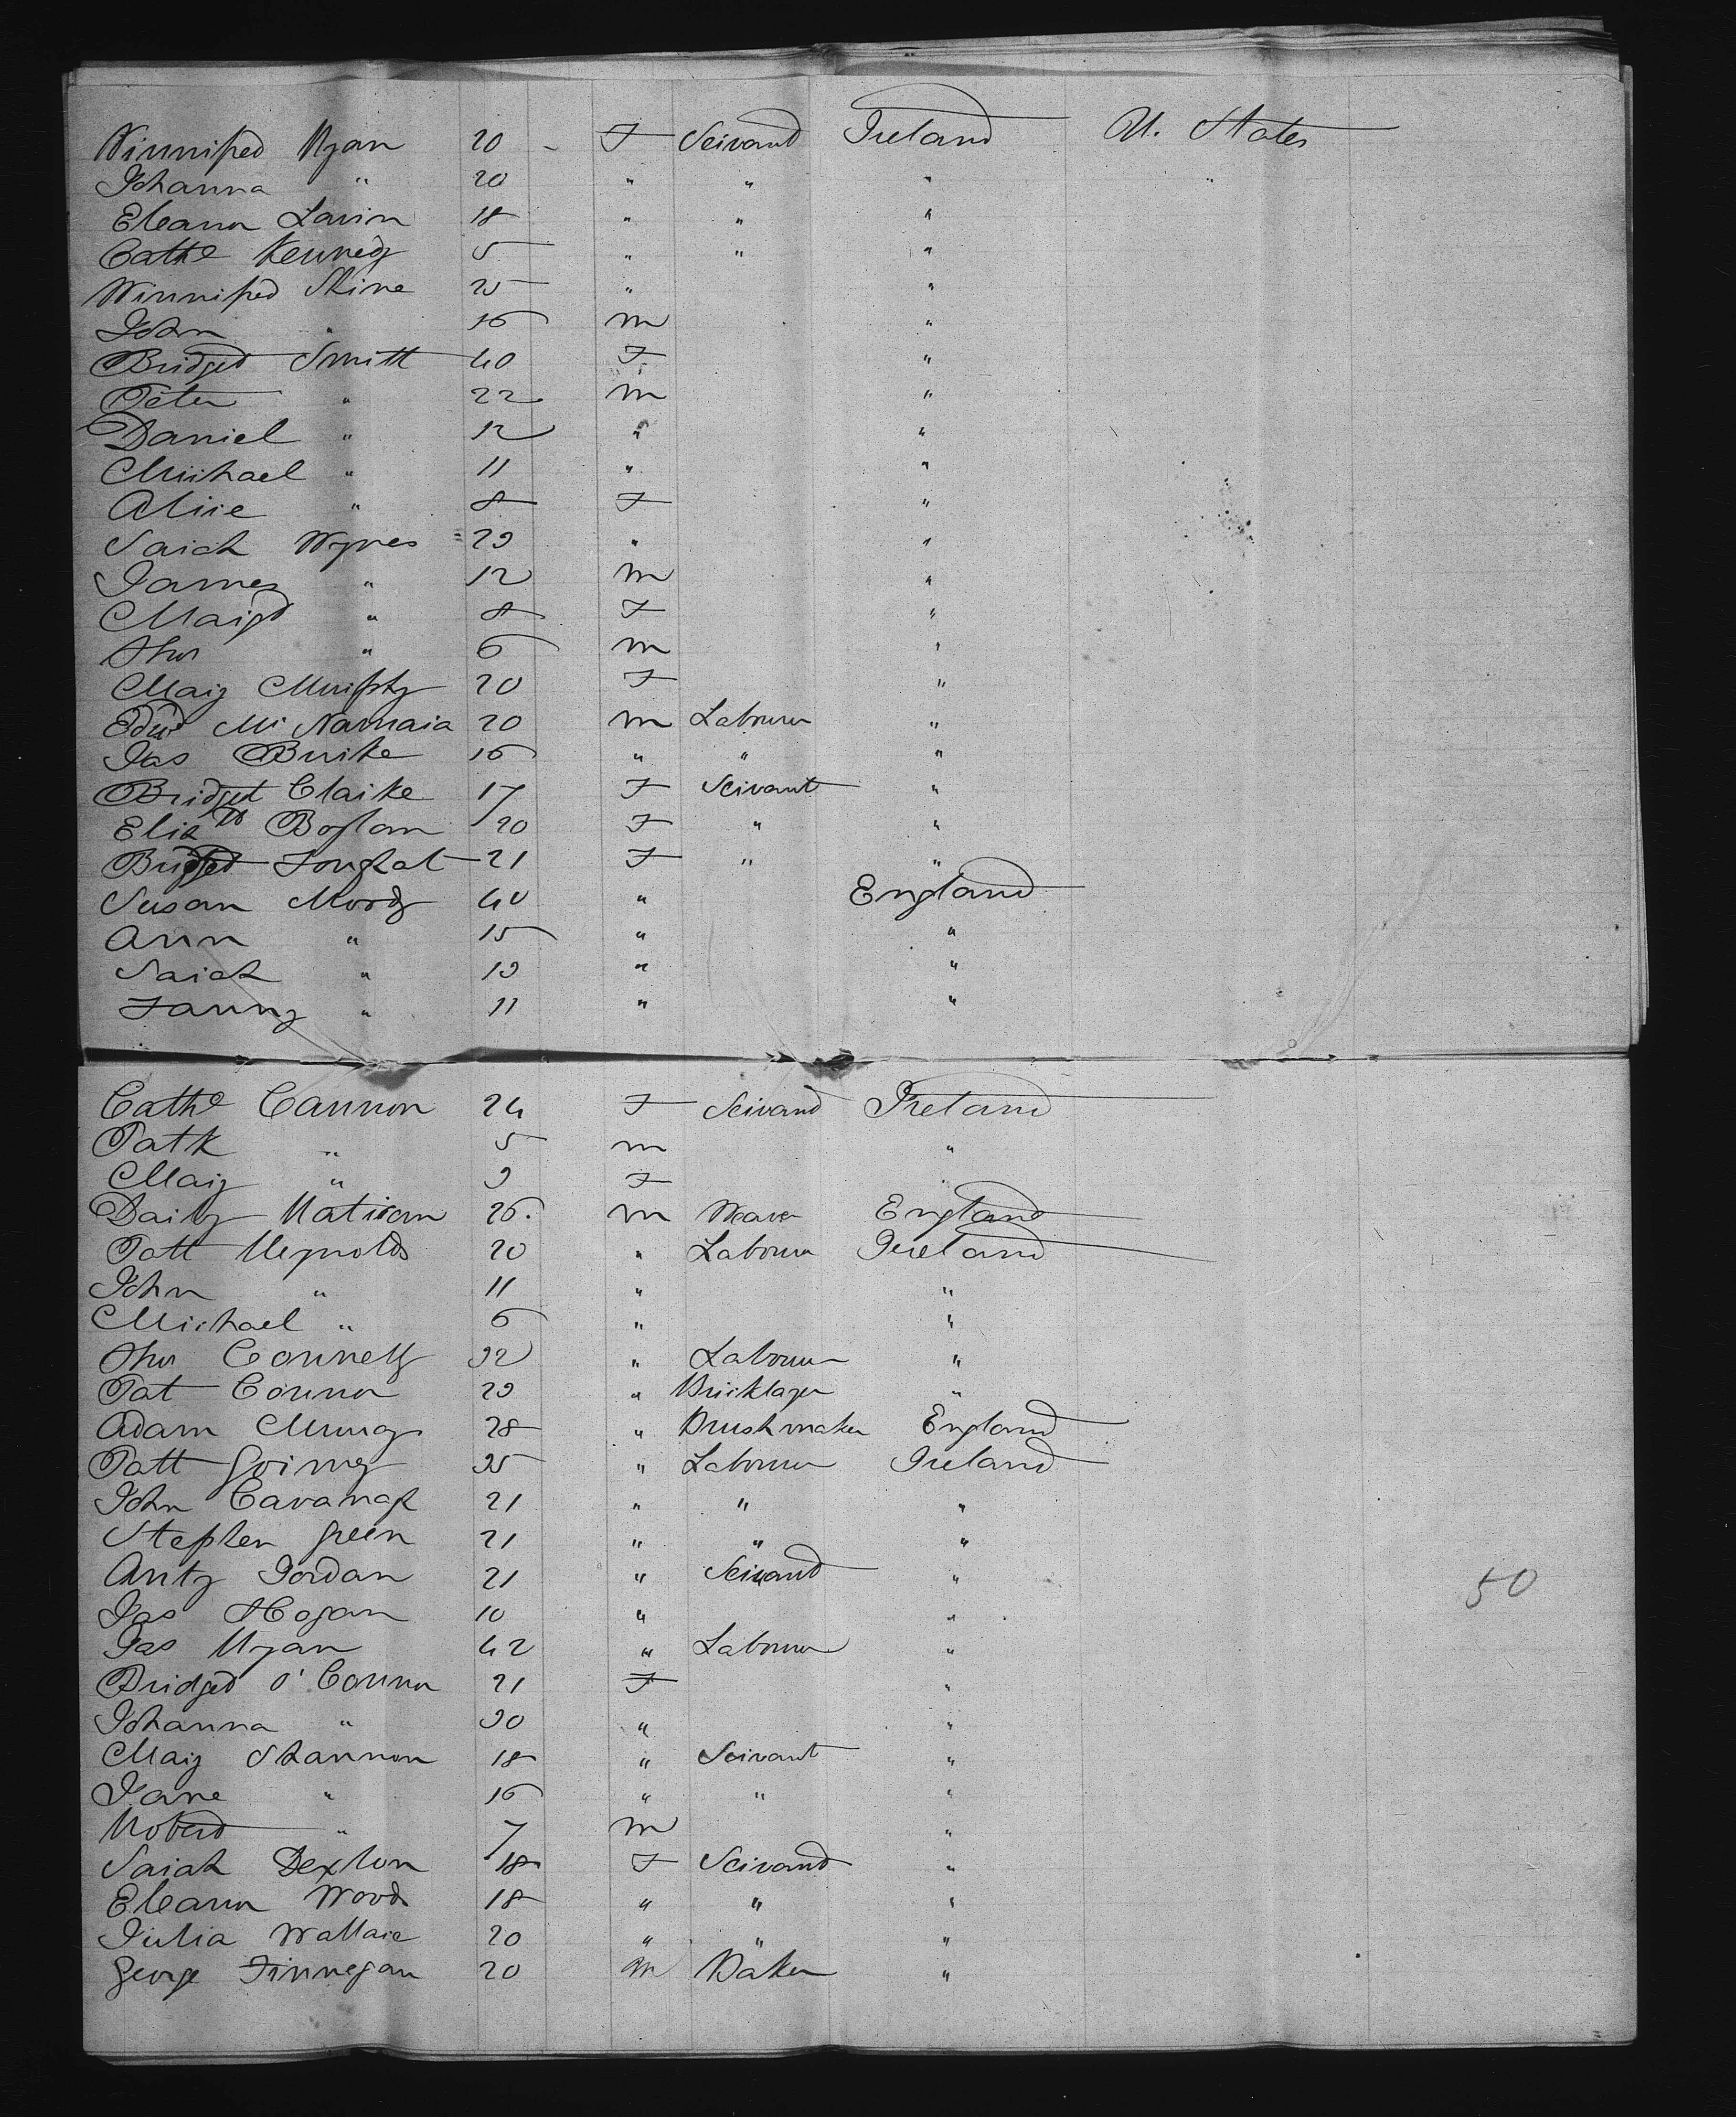 Winnifred Ryan 20 - F Servand Ireland U. States
Johanna " 20 " " " "
Eleanor Lavin 18 " " "
Cathe Kennedy 5 " " "
Winnifred Shine 25 " "
John " 16 m "
Bridged Smith 40 F "
Peter " 22 m "
Daniel " 12 " "
Michael " 11 " "
Alice " 8 F "
Sarah Wynes 29 " "
James " 12 m "
Margt " 8 F "
Thos " 6 m "
Mary Murphy 20 F "
Edwd Mc Namara 20 m Labourer "
Jas Burke 16 " " "
Bridget Clarke 17 F Servant "
Elizth Boylan 20 F " "
Bridged 21 F " "
Susan Moody 40 " England
Ann " 15 " "
Sarah " 13 " "
Fanny " 11 " "
Cathe Cannon 24 F Servand Ireland
Patk " 5 m "
Mary " 3 F "
26. m Weaver England
Patt Reynolds 20 " Labourer Ireland
John " 11 " "
Michael " 6 " "
Thos Connelly 32 " Labourer "
Pat Connor 29 " Bricklayer "
Adam 28 " Brushmaker England
Patt 35 " Labourer Ireland
John Cavanagh 21 " " "
Stephen Green 21 " " "
Anty Jordan 21 " Servand "
Jas Hogan 10 " "
Jas Ryan 42 " Labourer "
Bridged O' Connor 21 F "
Johanna " 30 " "
Mary Shannon 18 " Servant "
Jane " 16 " " "
Roberd " 7 m "
Sarah Dexton 18 F Servand "
Eleanor Woods 18 " " "
Julia Wallace 20 " " "
George Finnegan 20 m Baker "
50